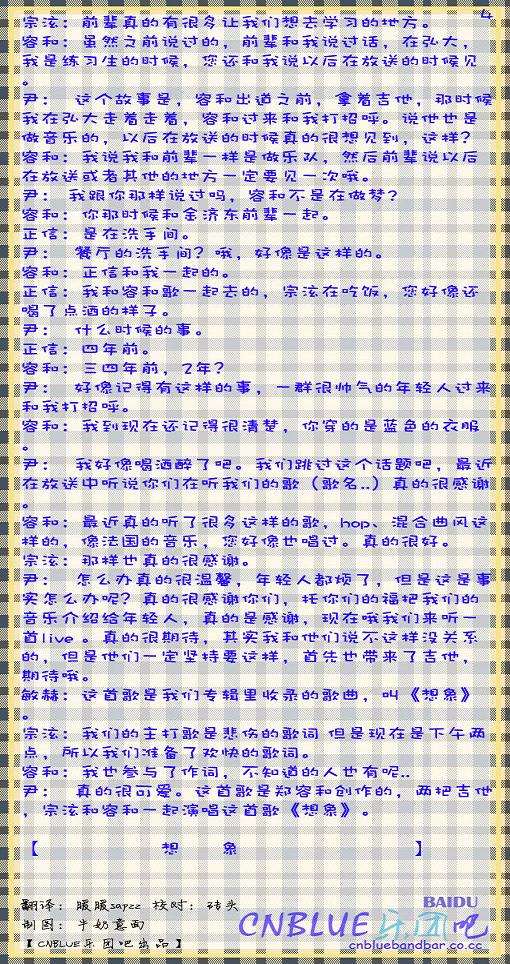 4
宗泫: 前辈真的有很多让我们想去学习的地方。
容和: 虽然之前说过的, 前辈和我说过话, 在弘大,
我是练习生的时候, 您还和我说以后在放送的时候见
。
尹: 这个故事是, 容和出道之前, 拿着吉他, 那时候
我在弘大走着走着, 容和过来和我打招呼。说他也是
做音乐的, 以后在放送的时候真的很想见到, 这样?
容和: 我说我和前辈一样是做乐队, 然后前辈说以后
在放送或者其他的地方一定要见一次哦。
尹: 我跟你那样说过吗, 容和不是在做梦?
容和: 你那时候和金济东前辈一起。
正信: 是在洗手间。
尹: 餐厅的洗手间? 哦, 好像是这样的。
容和: 正信和我一起的。
正信: 我和容和歌一起去的, 宗泫在吃饭, 您好像还
喝了点酒的样子。
尹: 什么时候的事。
正信: 四年前。
容和: 三四年前, 2年?
尹: 好像记得有这样的事, 一群很帅气的年轻人过来
和我打招呼。
容和: 我到现在还记得很清楚, 你穿的是蓝色的衣服
。
尹: 我好像喝酒醉了吧。我们跳过这个话题吧, 最近
在放送中听说你们在听我们的歌 (歌名..) 真的很感谢
。
容和: 最近真的听了很多这样的歌, hop、混合曲风这
样的, 像法国的音乐, 您好像也唱过。真的很好。
宗泫: 那样也真的很感谢。
尹: 怎么办真的很温馨, 年轻人都烦了, 但是这是事
实怎么办呢? 真的很感谢你们, 托你们的福把我们的
音乐介绍给年轻人, 真的是感谢, 现在哦我们来听一
首live 。真的很期待, 其实我和他们说不这样没关系
的, 但是他们一定坚持要这样, 首先也带来了吉他,
期待哦。
敏赫: 这首歌是我们专辑里收录的歌曲, 叫《想象》
。
宗泫: 我们的主打歌是悲伤的歌词 但是现在是下午两
点, 所以我们准备了欢快的歌词。
容和: 我也参与了作词, 不知道的人也有呢..
尹: 真的很可爱。这首歌是郑容和创作的, 两把吉他
, 宗泫和容和一起演唱这首歌《想象》。
【 想 象 】
翻译: 暖暖sapzz 校对: 砖头
制图: 牛奶意面
【CNBLUE乐团吧出品】
BAIDU
CNBLUE乐团吧
cnbluebandbar.co.cc